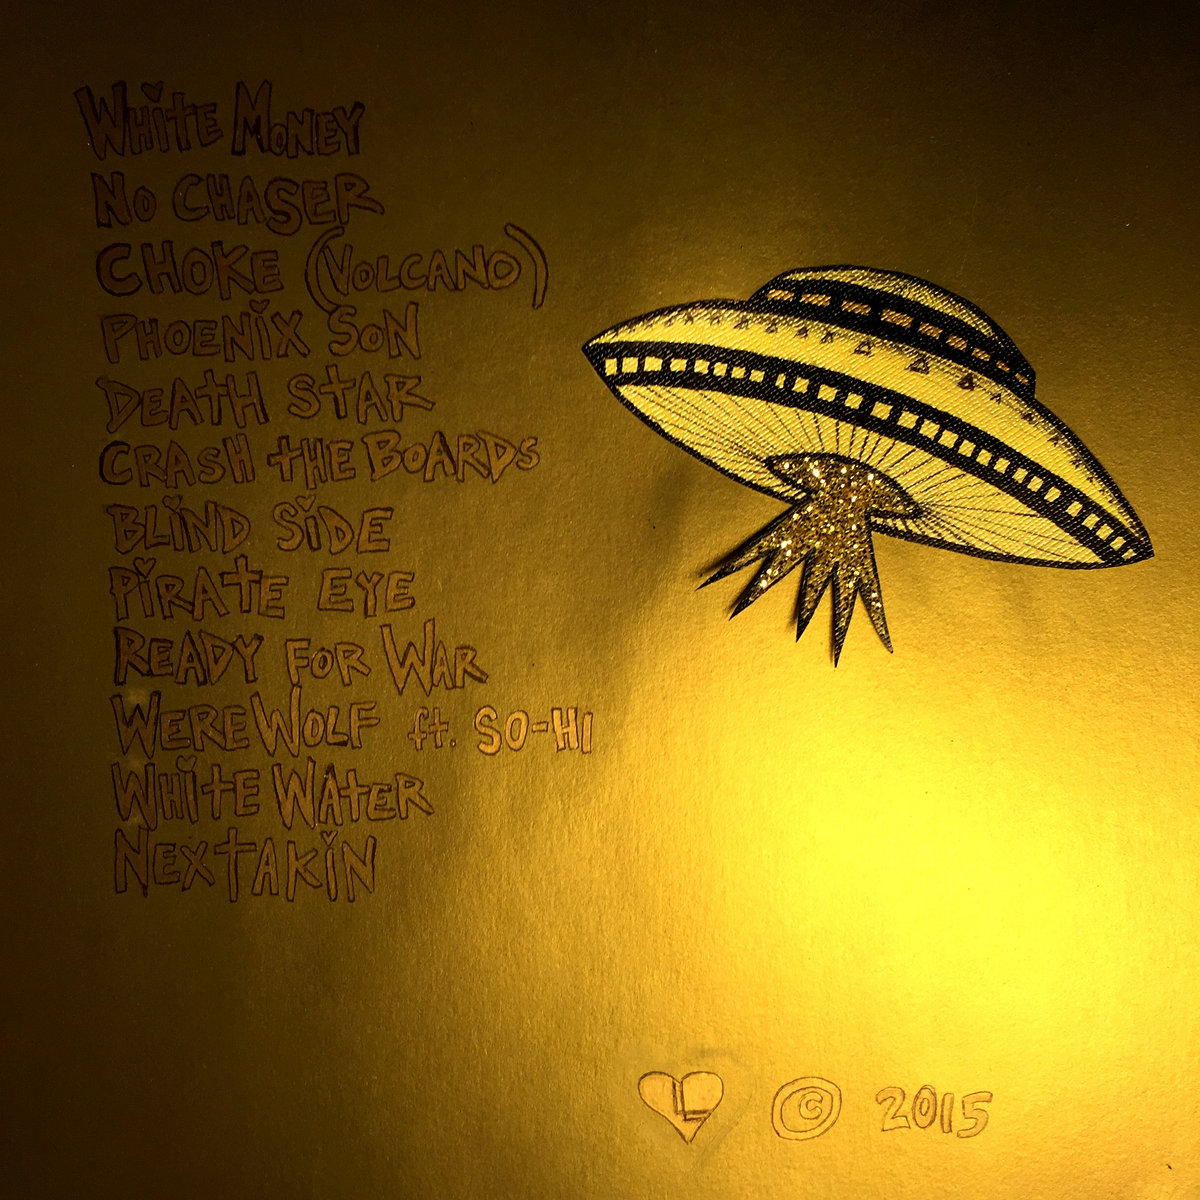 White Money
No Chaser
Choke (Volcano)
Phoenix Son
Death Star
Crash the Boards
Blind Side
Pirate Eye
Ready for War
WereWolf ft. SO-HI
White Water
Nextakin
L © 2015